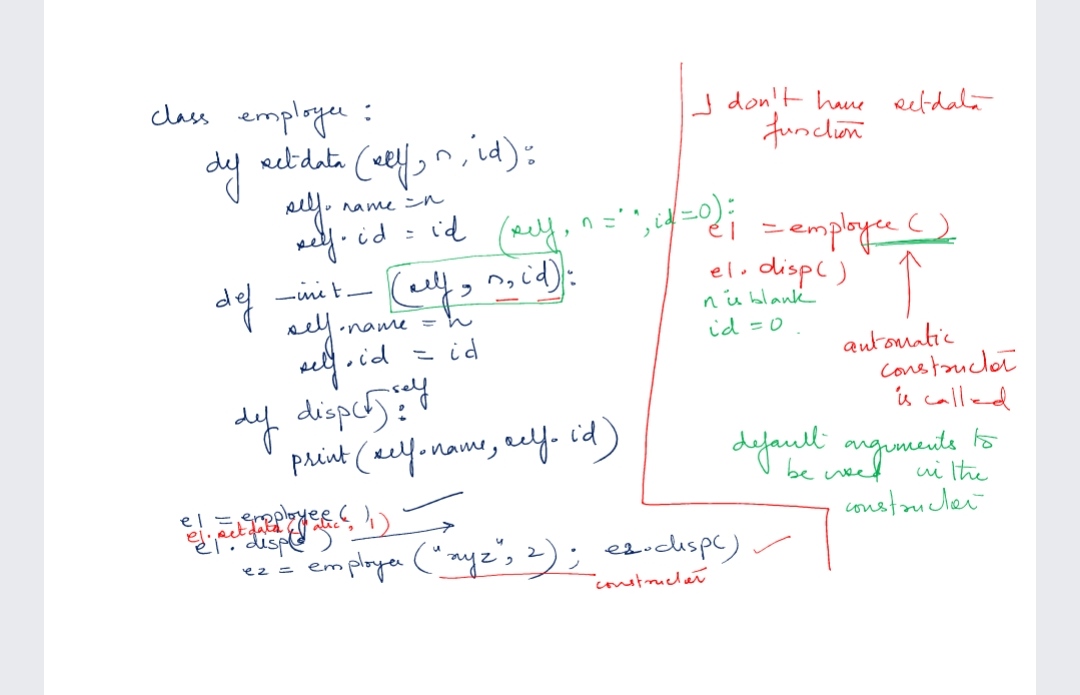 class employee :
def setdata (self, n, id):
self. name = n
self. id = id
(self, n = ' ', id = 0):
def _init_ (self, n, id):
self.name = n
self.id = id
def disp( ) : self
print (self.name, self.id)
e1 = employee ( )
e1. setdata ("alic", 1)
e1. disp( )
e2 = employee ("xyz", 2) ; e2.disp( )
constructor
I don't have setdata
function
e1 = employee ( )
e1. disp( )
n is blank
id = 0 .
automatic
constructor
is called
default arguments to
be used in the
constructor